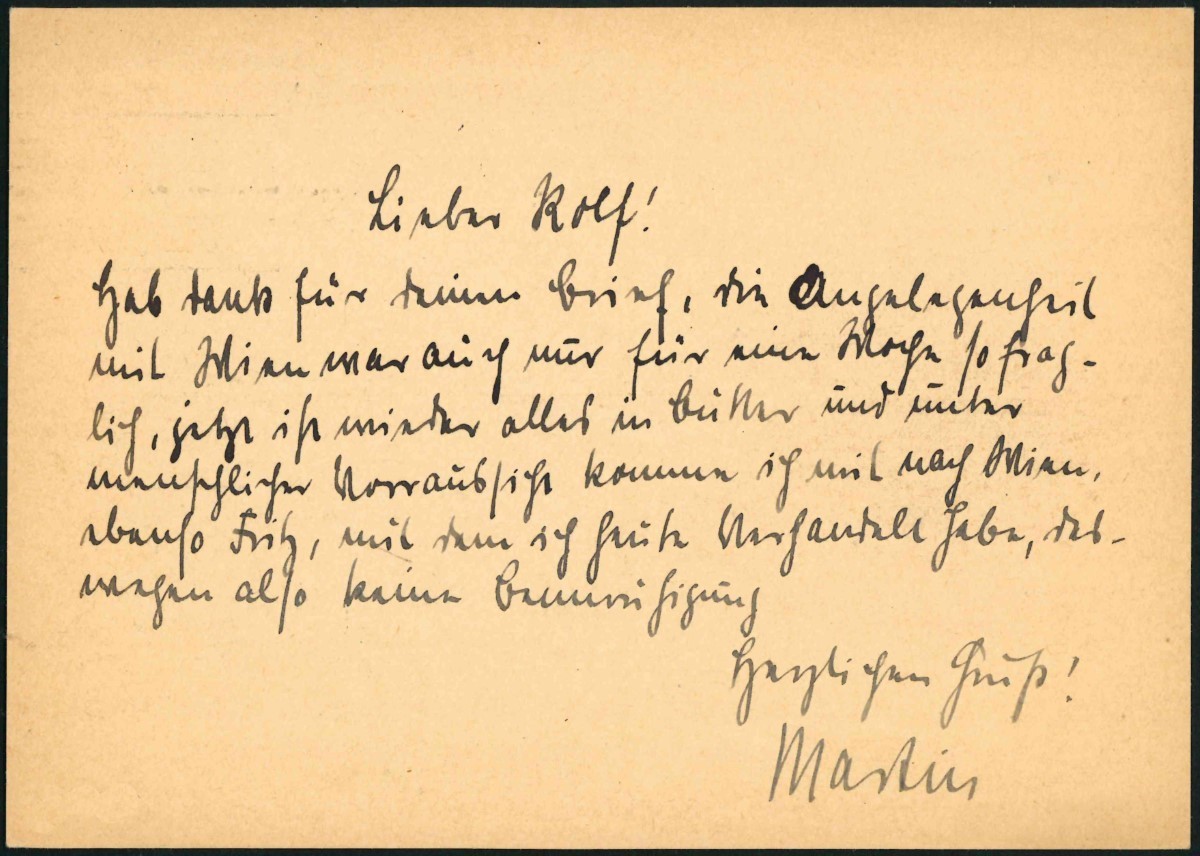 Lieber Rolf!
Hab dank für deinen Brief, die Angelegenheit
mit Wien war auch nur für eine Woche so frag-
lich, jetzt ist wieder alles in Butter und unter
menschlicher Vorraussicht komme ich mit nach Wien,
ebenso Fritz, mit dem ich heute Verhandelt habe, des-
wegen also keine Beunruhigung
Herzlichen Gruß!
Martin